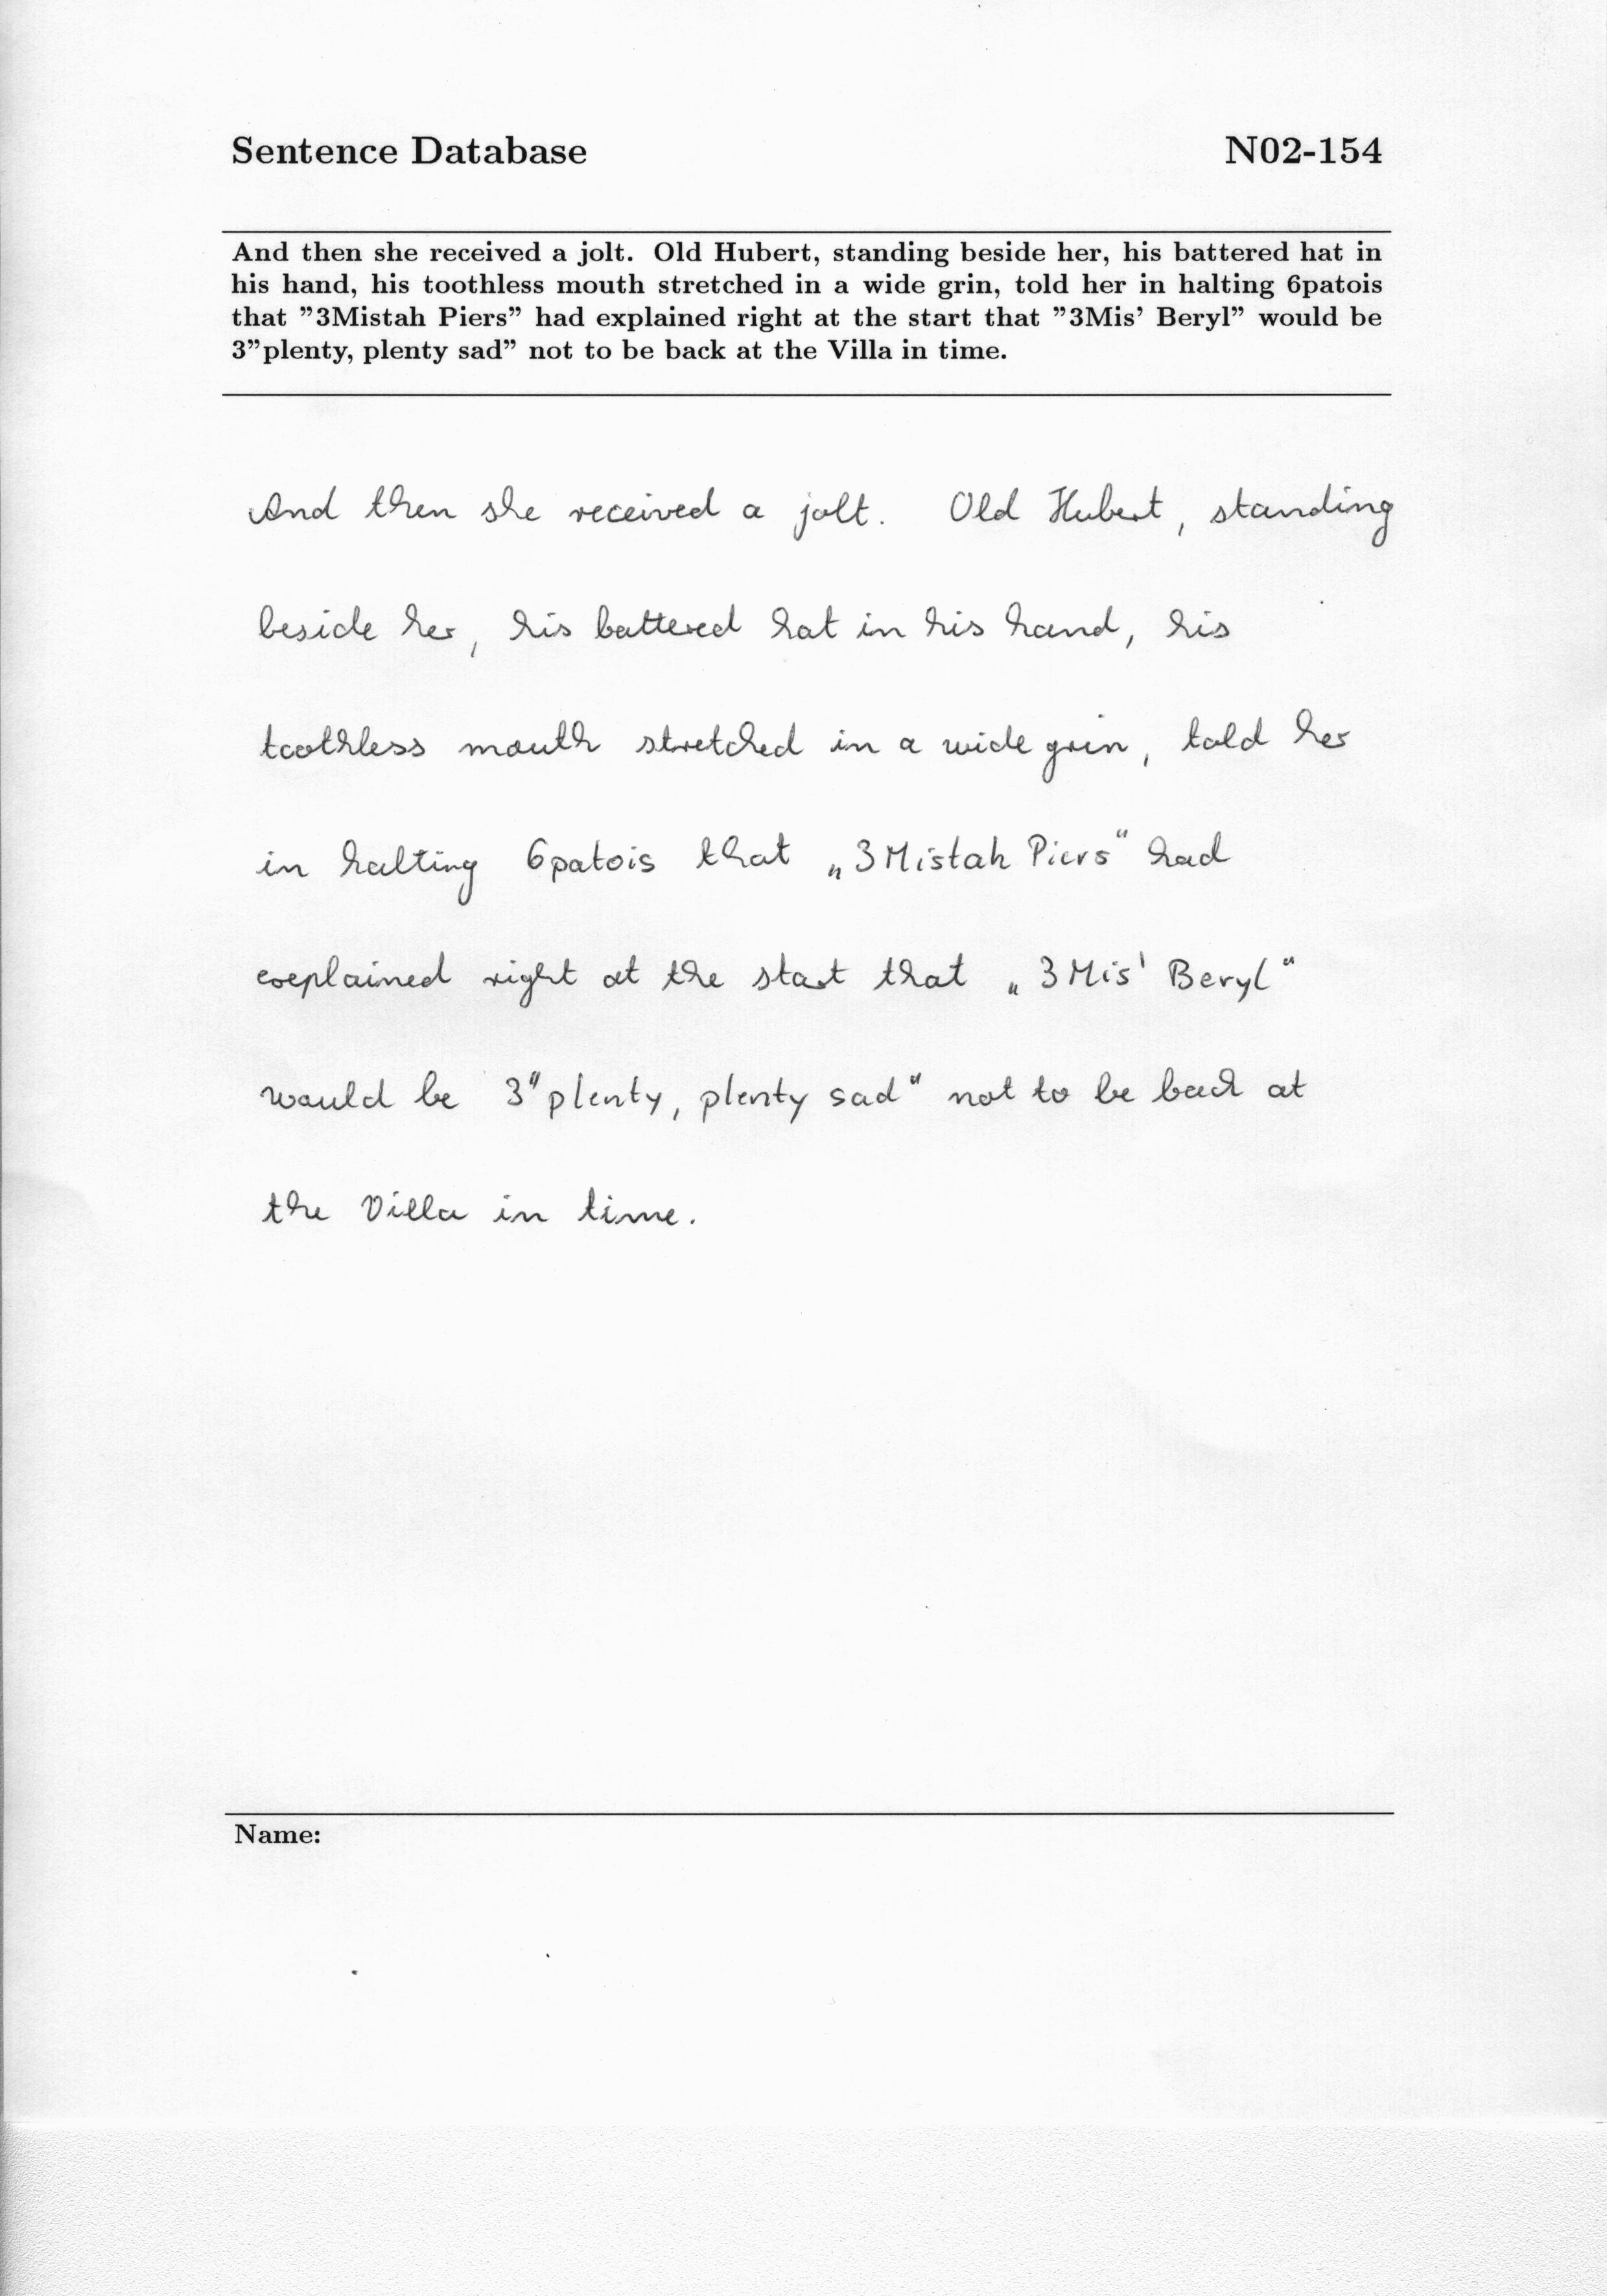 Sentence Database N02-154
And then she received a jolt. Old Hubert, standing beside her, his battered hat in
his hand, his toothless mouth stretched in a wide grin, told her in halting 6patois
that ”3Mistah Piers” had explained right at the start that ”3Mis’ Beryl” would be
3”plenty, plenty sad” not to be back at the Villa in time.
And then she received a jolt. Old Hubert, standing
beside her, his battered hat in his hand, his
toothless mouth stretched in a wide grin, told her
in halting 6patois that „3Mistah Piers“ had
explained right at the start that „3Mis' Beryl“
would be 3"plenty, plenty sad" not to be back at
the Villa in time.
Name: